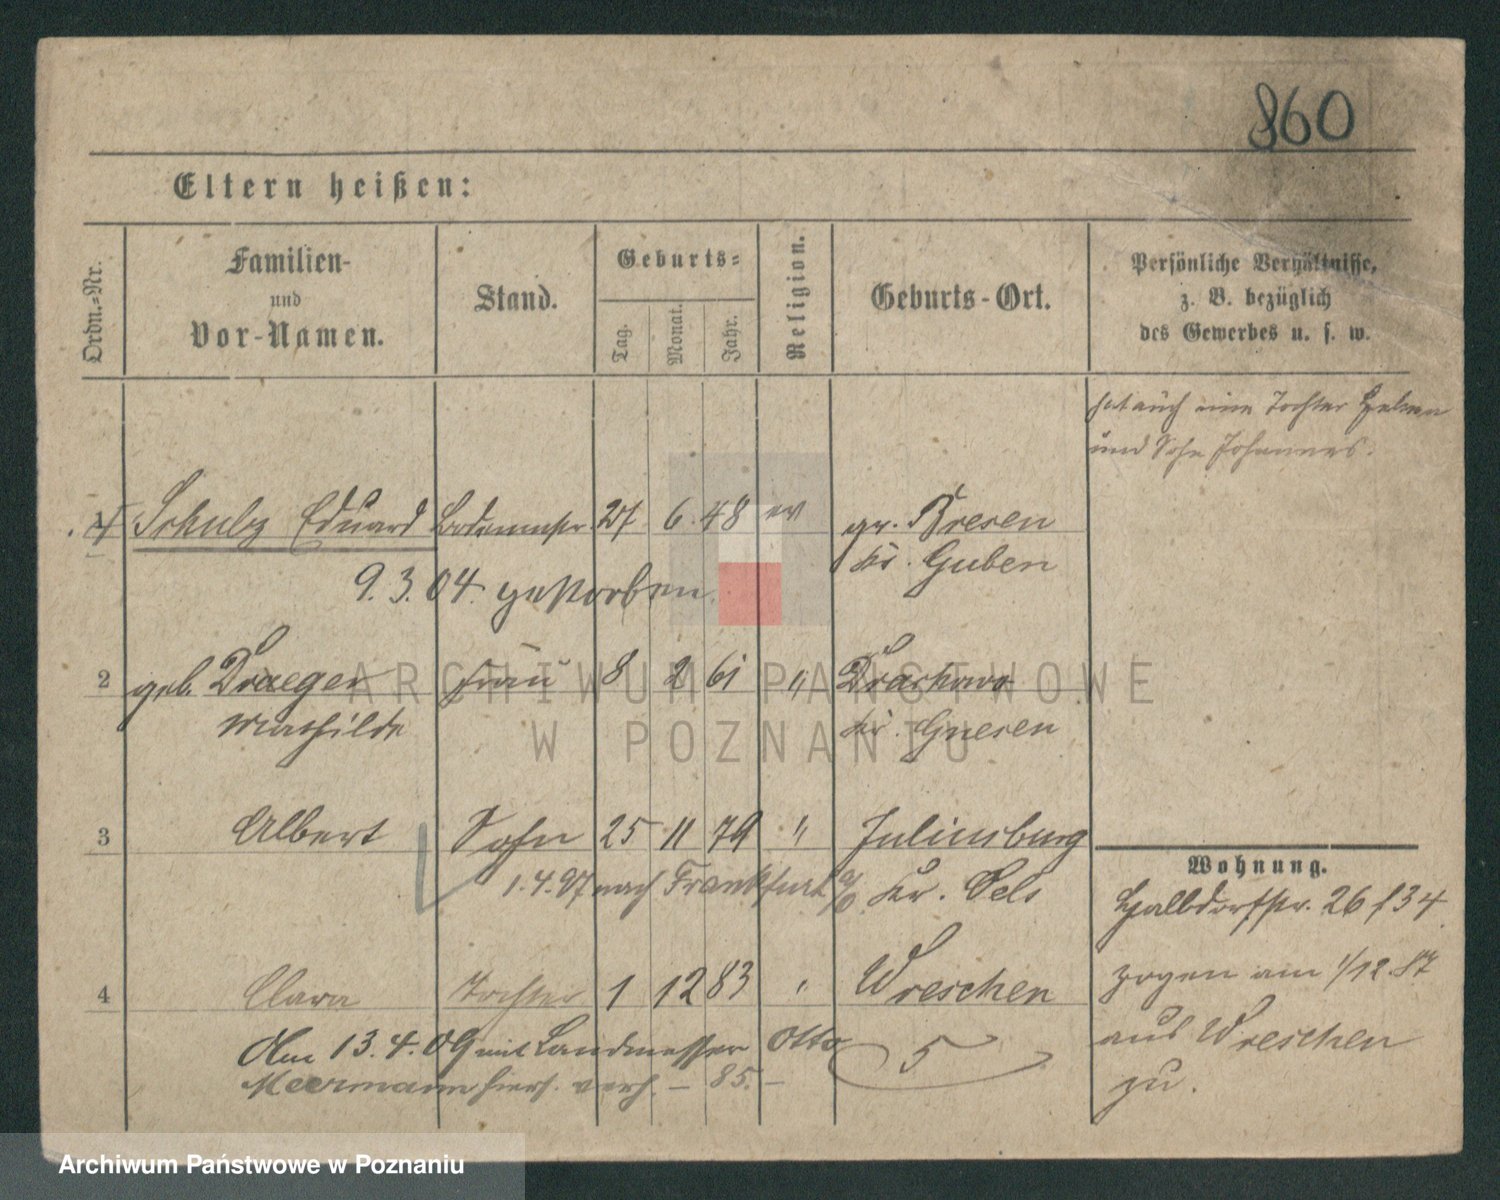 860
Eltern heißen:
Ordn.-Nr.
Familien-
und
Vor-Namen.
Stand.
Geburts-
Tag.
Monat.
Jahr.
Religion.
Geburts-Ort.
Persönliche Verhältnisse,
z. B. bezüglich
des Gewerbes u. s. w.
hat auch eine Tochter
und Sohn Johannes.
1 Schulz Eduard 27 6. 48 ev gr. Bresen
Kr. Guben
9. 3. 04. gestorben.
2 geb. Draeger Frau 8 2 61 " 
Mathilde Kr. Gnesen
3 Albert Sohn 25 11 79 " Juliusburg
1. 4. 97 nach Frankfurt a/O. Kr. Oels
4 Clara Tochter 1 12 83 " Wreschen
Am 13. 4. 09 mit Landmesser Otto
Meermann hiers. verh. – 85. –
5
Wohnung.
Halbdorfstr. 26 f 34
zogen am 1/12. 87
aus Wreschen
zu.
ARCHIWUM PAŃSTWOWE
W POZNANIU
Archiwum Państwowe w Poznaniu